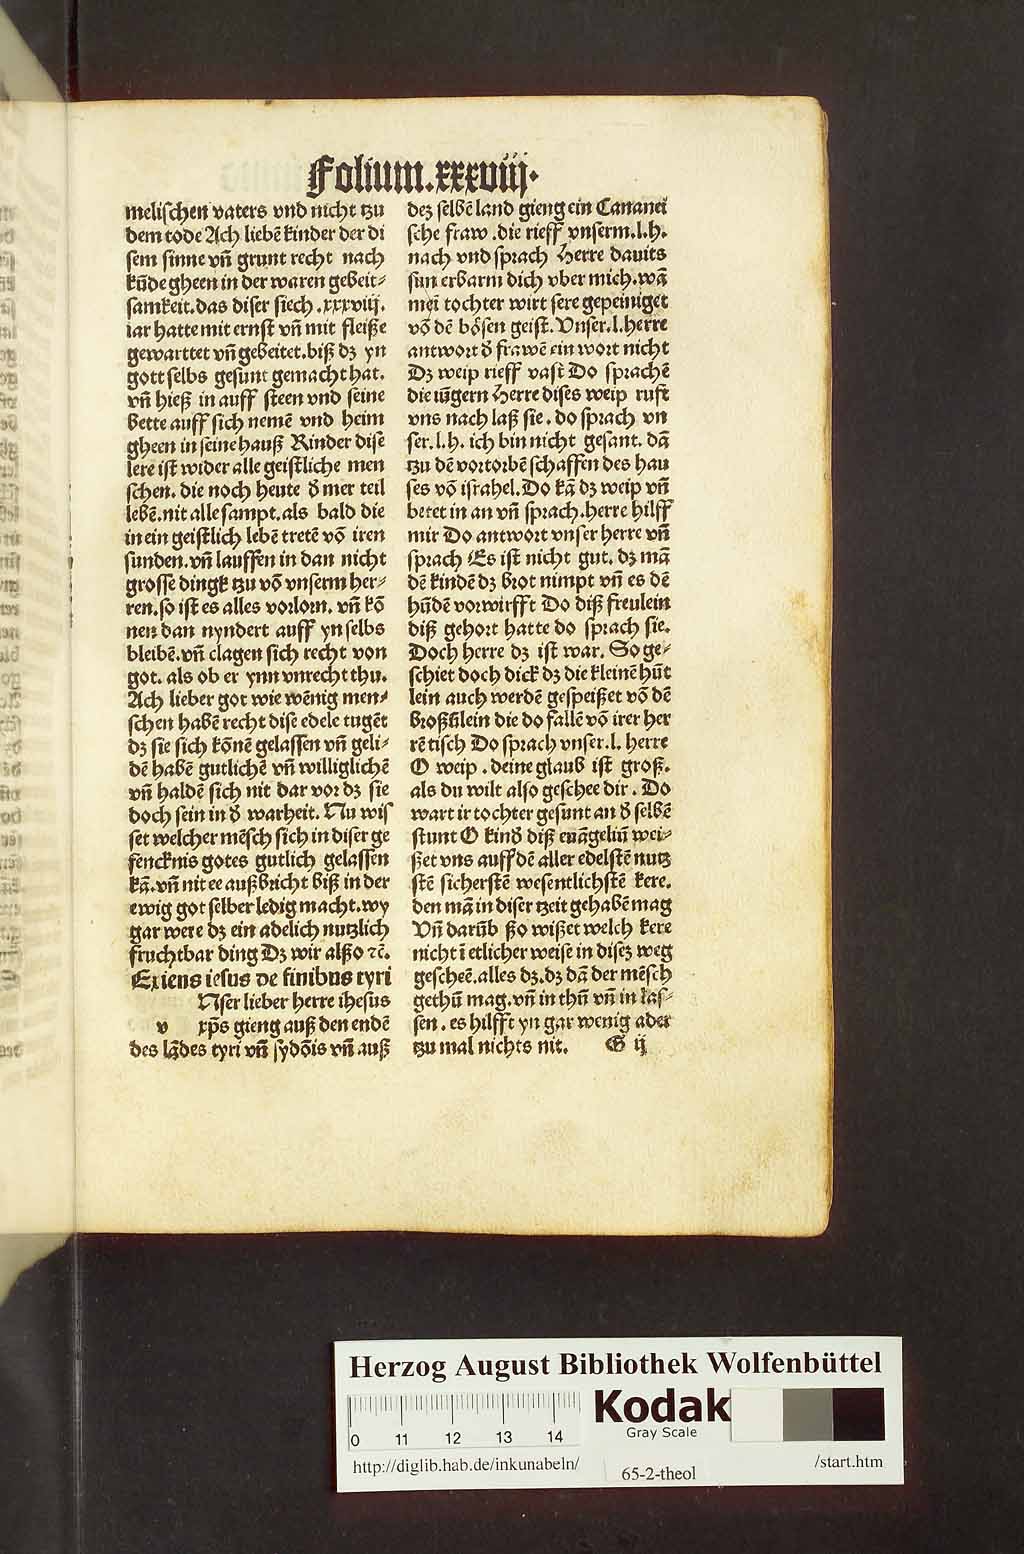 Folium.xxxviij.
melischen vaters vnd nicht tzu
dem tode Ach liebē kinder der di
sem sinne vn̄ grunt recht nach
kūde gheen in der waren gebeit⸗
samkeit.das diser siech .xxxviij.
iar hatte mit ernst vn̄ mit fleiße
gewarttet vn̄ gebeitet.biß dz yn
gott selbs gesunt gemacht hat.
vn̄ hieß in auff steen vnd seine
bette auff sich nemē vnd heim
gheen in seine hauß Kinder dise
lere ist wider alle geistliche men
schen. die noch heute ď mer teil
lebē.nit alle sampt.als bald die
in ein geistlich lebē tretē vō iren
sunden.vn̄ lauffen in dan nicht
grosse dingk tzu vō vnserm her⸗
ren.so ist es alles vorlorn. vn̄ kō
nen dan nyndert auff yn selbs
bleibē.vn̄ clagen sich recht von
got. als ob er ynn vnrecht thu.
Ach lieber got wie wēnig men⸗
schen habē recht dise edele tugēt
dz sie sich kōnē gelassen vn̄ geli⸗
dē habē gutlichē vn̄ williglichē
vn̄ haldē sich nit dar vor dz sie
doch sein in ď warheit. Nu wis
set welcher mēsch sich in diser ge
fencknis gotes gutlich gelassen
kā.vn̄ nit ee außbricht biß in der
ewig got selber ledig macht.wy
gar were dz ein adelich nutzlich
fruchtbar ding Dz wir alßo ⁊c̄.
Exiens iesus de finibus tyri
Nser lieber herre ihesus
v xp̄s gieng auß den endē
des lādes tyri vn̄ sydōis vn̄ auß
dez selbē land gieng ein Cananei
sche fraw .die rieff vnserm.l.h.
nach vnd sprach Herre dauits
sun erbarm dich vber mich.wā
mei tochter wirt sere gepeiniget
vō dē bösen geist. Vnser.l.herre
antwort ď frawē ein wort nicht
Dz weip rieff vast Do sprachē
die iūgern Herre dises weip ruft
vns nach laß sie. do sprach vn
ser.l.h. ich bin nicht gesant. dā
tzu dē vortorbē schaffen des hau
ses vō israhel.Do kā dz weip vn̄
betet in an vn̄ sprach.herre hilff
mir Do antwort vnser herre vn̄
sprach Es ist nicht gut. dz mā
dē kindē dz brot nimpt vn̄ es dē
hūdē vorwirfft Do diß freulein
diß gehort hatte do sprach sie.
Doch herre dz ist war. So ge⸗
schiet doch dick dz die kleinē hūt
lein auch werdē gespeißet vō dē
broßēlein die do fallē vō irer her
rē tisch Do sprach vnser.l. herre
O weip . deine glaub ist groß.
als du wilt also geschee dir . Do
wart ir tochter gesunt an ď selbē
stunt O kinď diß euāgeliū wei⸗
ßet vns auff dē aller edelstē nutz
stē sicherstē wesentlichstē kere.
den mā in diser tzeit gehabē mag
Vn̄ darūb ßo wißet welch kere
nicht ī etlicher weise in disez weg
gescheē.alles dz.dz dā der mēsch
gethū mag.vn̄ in thū vn̄ in las⸗
sen . es hilfft yn gar wenig ader
tzu mal nichts nit. G ij
Herzog August Bibliothek Wolfenbüttel
Kodak
Gray Scale
0 11 12 13 14
http://diglib.hab.de/inkunabeln/
65-2-theol
/start.htm